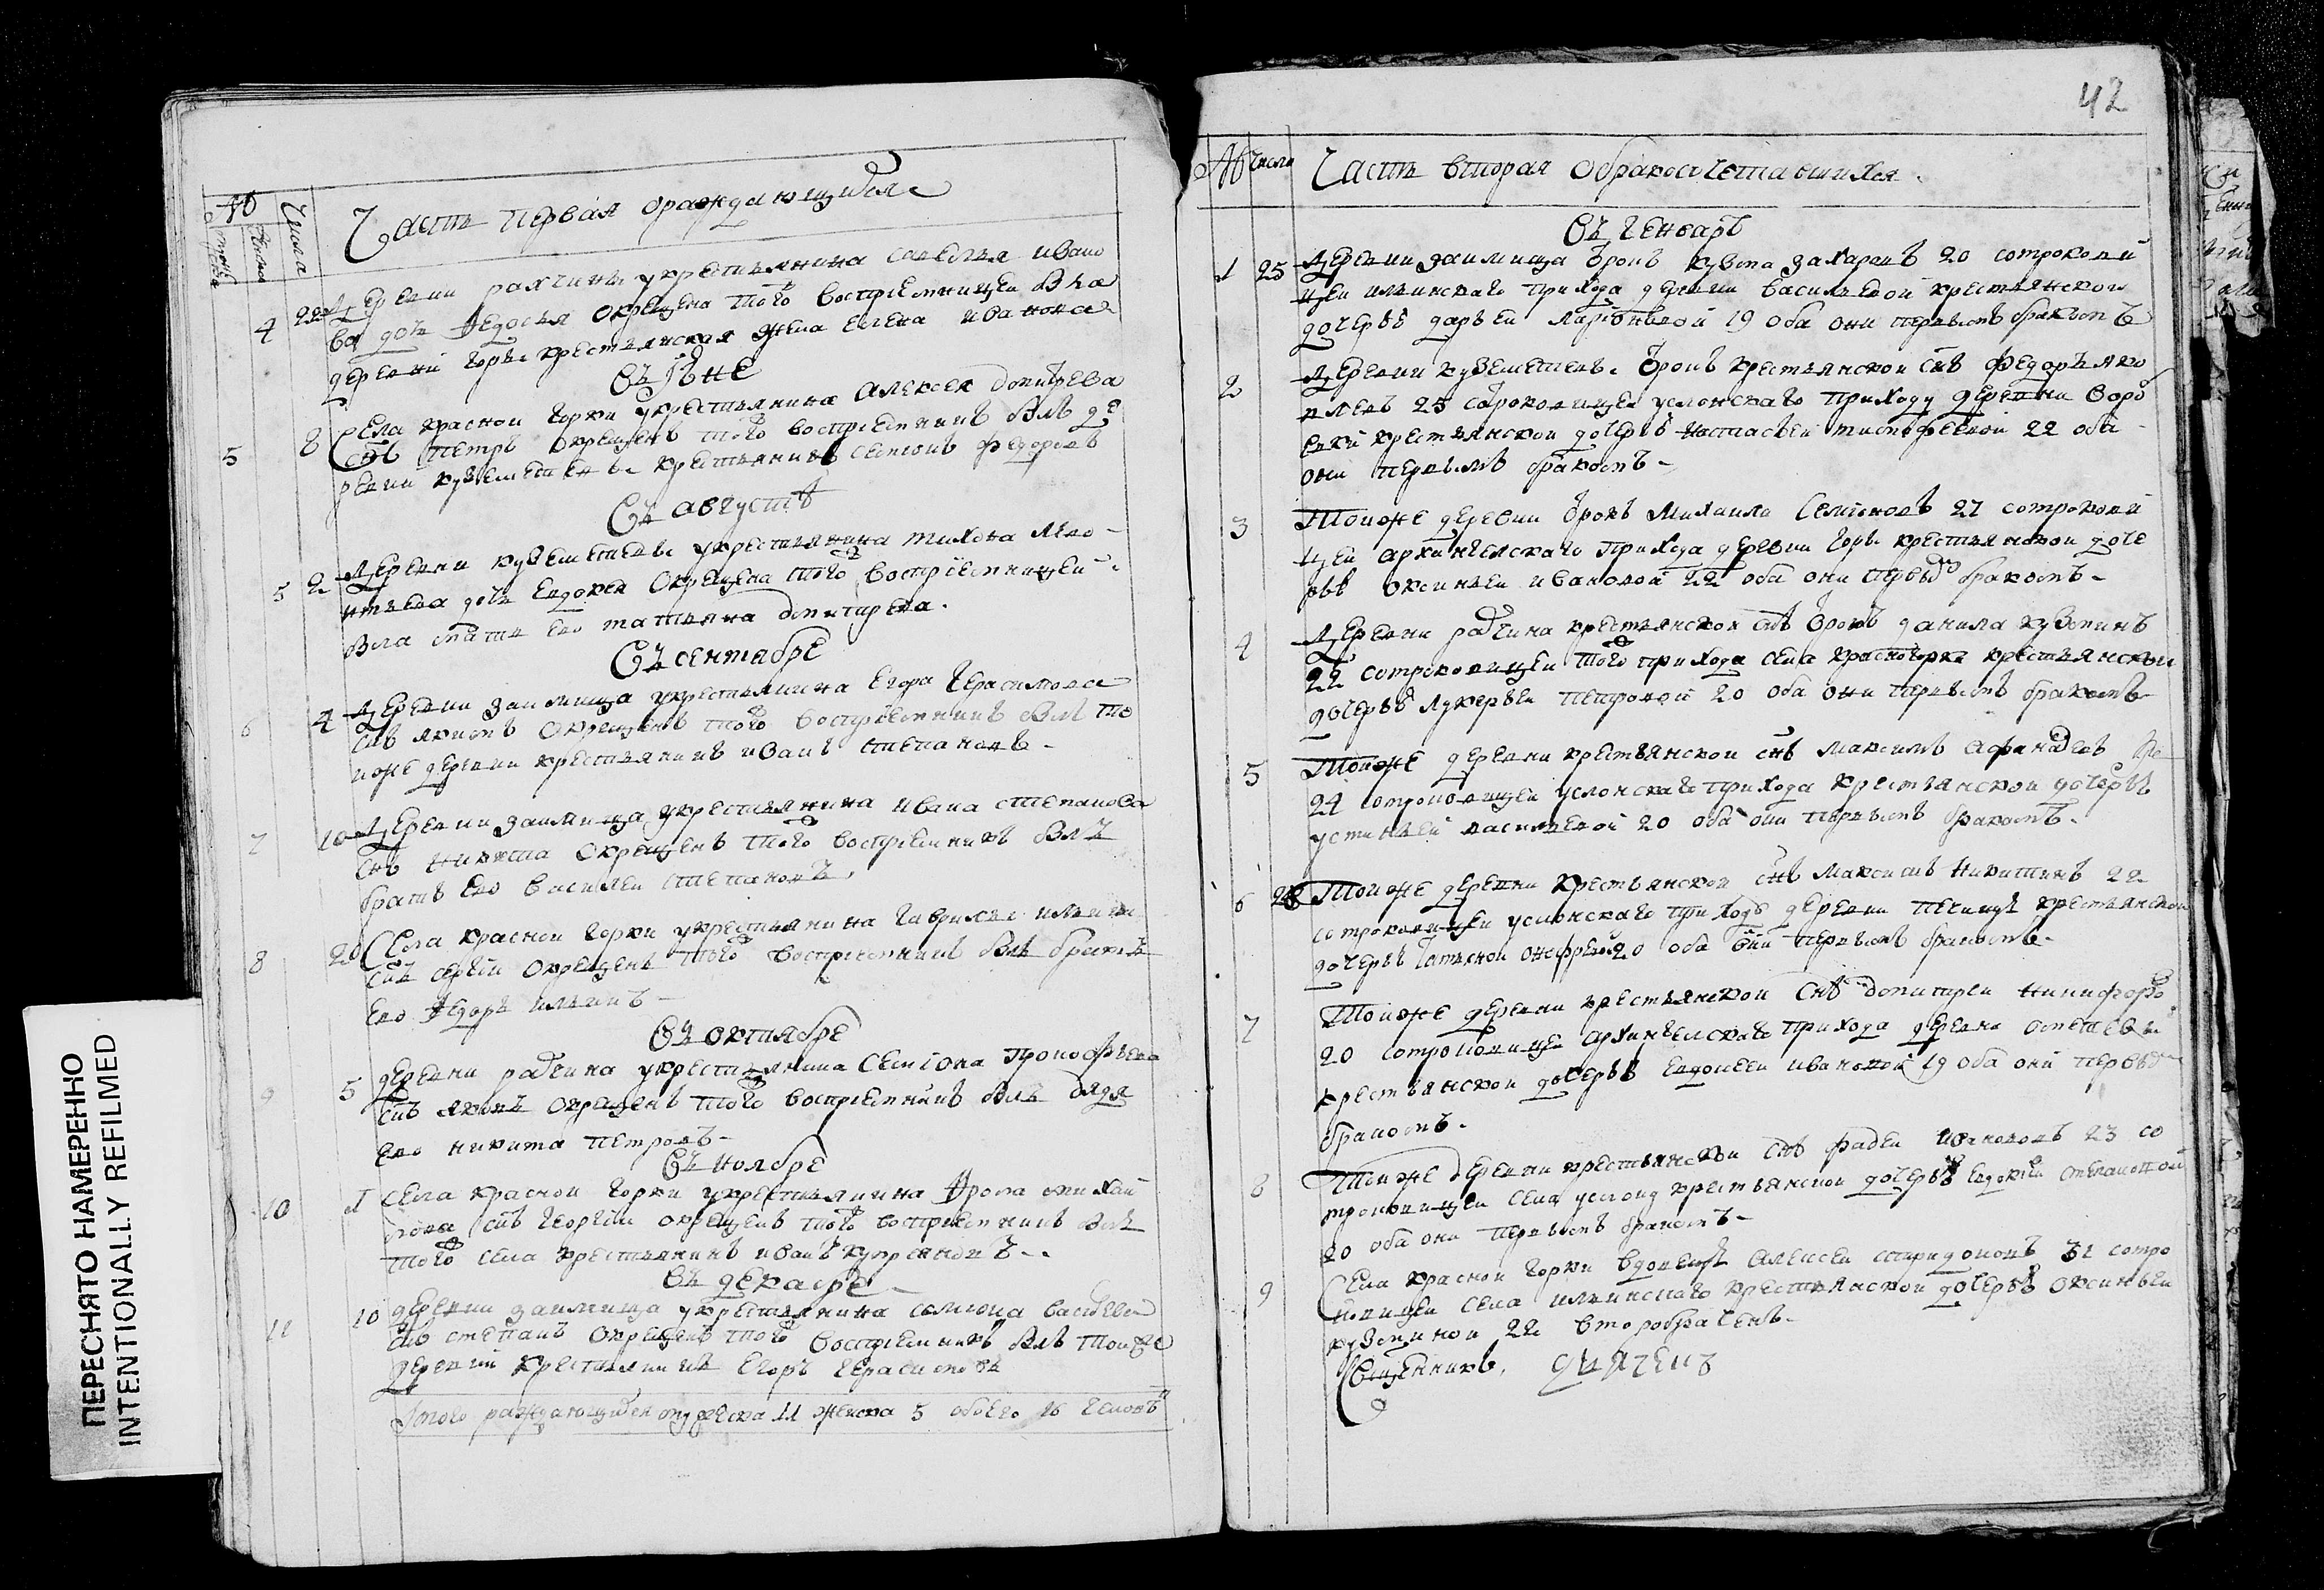 ПЕРЕСНЯТО НАМЕРЕННО
INTENTIONALLY REFILMED
№ Числа
Часть первая ораждающихся
4 22 Деревни рахчины укрестьянина савелья ивано
ва дочь Федосья окрещена того восприемницей была
деревни горы крестьянская жена елена иванова
Въ Июне
5 8 Села красной горки укрестьянина алексея дмитрева
снъ петръ окрещенъ того восприемникъ былъ де
ревни куземетевы крестьянинъ семионъ федоровъ
Въ августѣ
5 2 Деревни куземетевы укрестьянина тихона
дочь евдокея окрещена того восприемницей
была мать ево татьяна дмитрева.
Въ сентябре
6 4 Деревни займища укрестьянина егора герасимова
снъ якимъ окрещенъ того восприемникъ былъ то
иже деревни крестьянинъ иванъ степановъ
7 10 Деревни займища укрестьянина ивана степанова
снъ никита окрещенъ того восприемникъ былъ
братъ ево василеи степановъ.
8 20 Села краснои горки укрестьянина гаврилы ильина
снъ сергей окрещенъ того восприемникъ былъ братъ
ево федоръ ильинъ
Въ октябре
9 5 деревни рачина укрестьянина семиона прокофьева
снъ яковъ окрещенъ того восприемникъ былъ дядя
ево никита петровъ
Въ ноябре
10 1 Села краснои горки укрестьянина Фрола михаи
лова снъ георгии окрещенъ того восприемникъ былъ
того села крестьянинъ иванъ куприяновъ
Въ декабре
11 10 деревни займища укрестьянина семиона василева
снъ степанъ окрещенъ того восприемникъ былъ тоиже
деревни крестьянинъ егоръ герасимовъ
Итого раждающихся мужеска 11 женска 5 обоего 16 человъ
42
№ Числа Часть вторая обракосочетавшихся.
Въ генваре
1 25 Деревни займища отрокъ кузма захаровъ 20 сотрокови
цеи ильинскаго прихода деревни васильевой крестьянскои
дочерью дарьеи ларионовои 19 оба они первымъ бракомъ
2 Деревни куземетевы отрокъ крестьянскои снъ федоръ яко
влевъ 25 сотроковицеи услонскаго приходу деревни воро
крестьянскои дочерью настасьеи тимофеевои 22 оба
они первымъ бракомъ
3 Тоиже деревни отрокъ михаила семионовъ 27 сотрокови
цеи архангелскаго прихода деревни горы крестьянскои доче
рью оксиньеи ивановои 22 оба они первымъ бракомъ
4 Деревни рачина крестьянскои снъ отрокъ данила кузминъ
22 сотроковицеи того прихода села красногорка крестьянскои
дочерью лукерьеи петровои 20 оба они первымъ бракомъ
5 Тоиже деревни крестьянскои снъ максимъ афанасевъ
24 сотроковицеи услонскаго прихода крестьянскои дочерью
устиньеи васильевои 20 оба они первымъ бракомъ.
6 28 Тоиже деревни крестьянскои снъ максимъ никитинъ 22
сотроковицеи услонскаго приходу деревни печищъ крестьянскои
дочерью онофреевои 20 оба они первымъ бракомъ
7 Тоиже деревни крестьянскои снъ дмитреи никифоро
20 сотроковицеи архангелскаго прихода деревни
крестьянскои дочерью евдокеи ивановои 19 оба они первымъ
бракомъ.
8 Тоиже деревни крестьянскои снъ фадеи ивановъ 23 со
троковицеи села услона крестьянскои дочерью евдокеи степановои
20 оба они первымъ бракомъ
9 Села краснои горки вдовецъ алексеи спиридоновъ 32 сотро
ковицеи села ильинскаго крестьянскои дочерью оксиньеи
кузминои 22 второбраченъ
Священникъ,